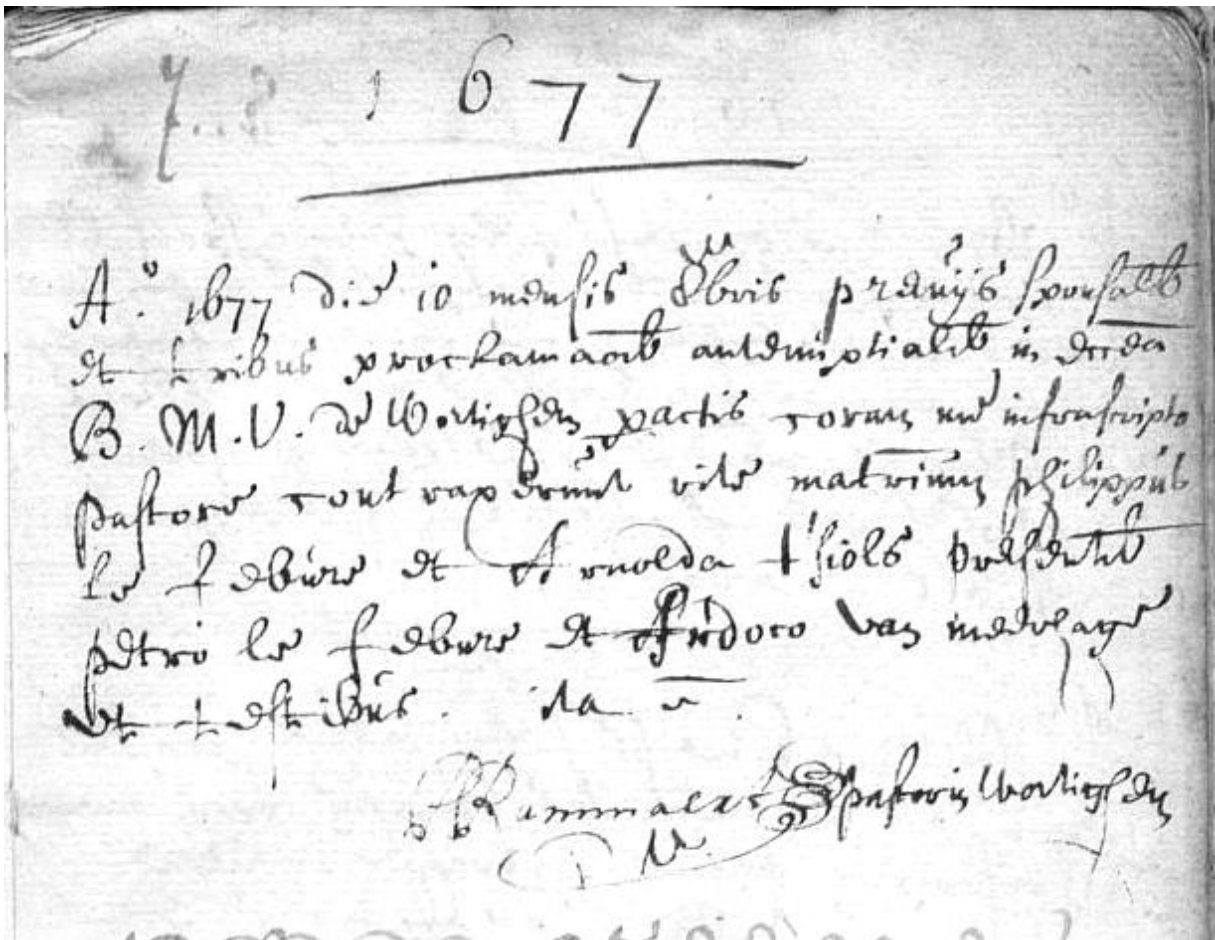 1677
A.o 1677 die 10 mensis 8bris prævijs sponsalib
et tribus proclamaoib antenuptialib in eccla
B. M. V. de Wortighem pactis coram me infrascripto
pastore contraxerunt rite matrium philippus
le febure et Arnolda t'siols presentib
petro le febure et Judoco van
et testibus. ita
Rammaert pastor in Wortighem